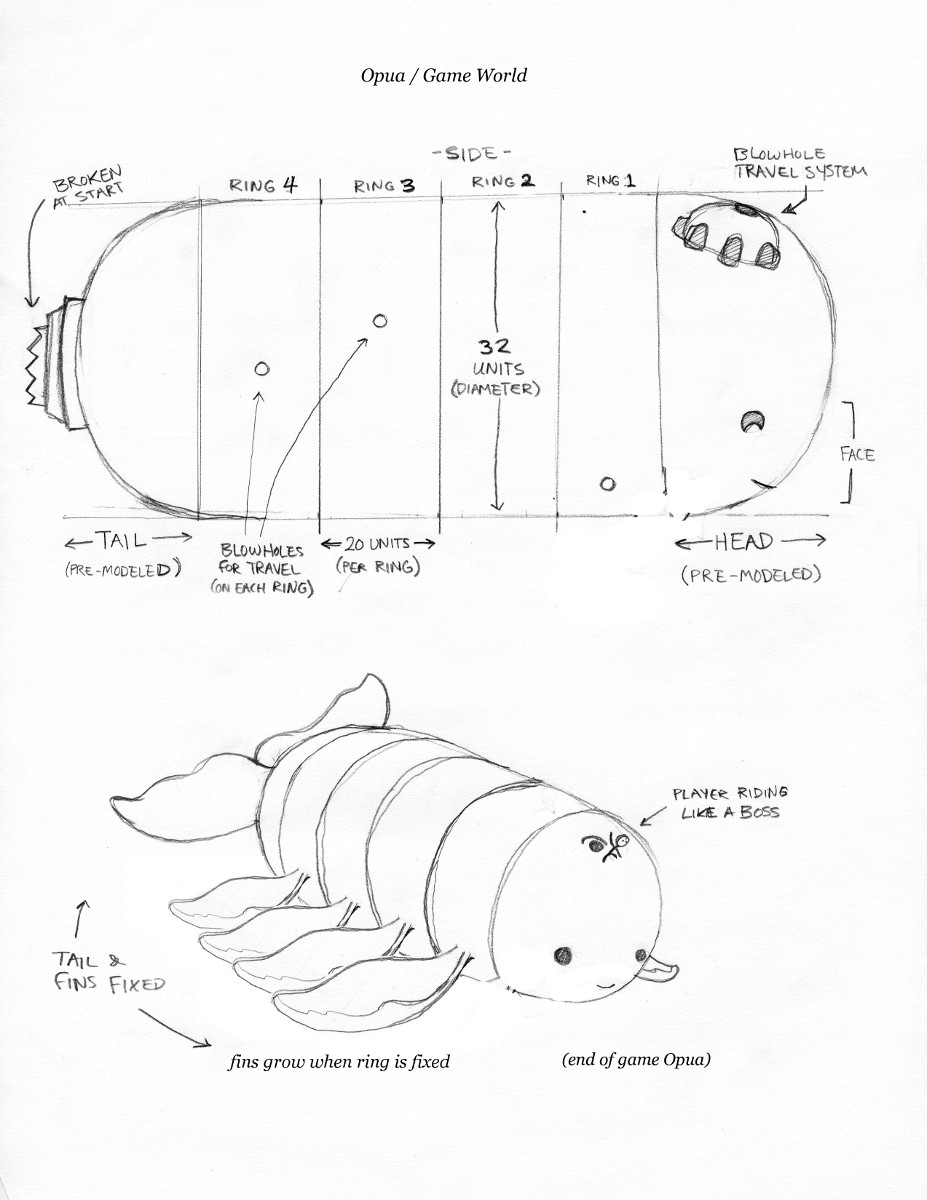 Opua / Game World
-SIDE-
BLOWHOLE
TRAVEL SYSTEM
BROKEN
AT START
RING 4
RING 3
RING 2
RING 1
32
UNITS
(DIAMETER)
FACE
TAIL
(PRE-MODELED)
BLOWHOLES
FOR TRAVEL
(ON EACH RING)
20 UNITS
(PER RING)
HEAD
(PRE-MODELED)
PLAYER RIDING
LIKE A BOSS
TAIL &
FINS FIXED
fins grow when ring is fixed
(end of game Opua)